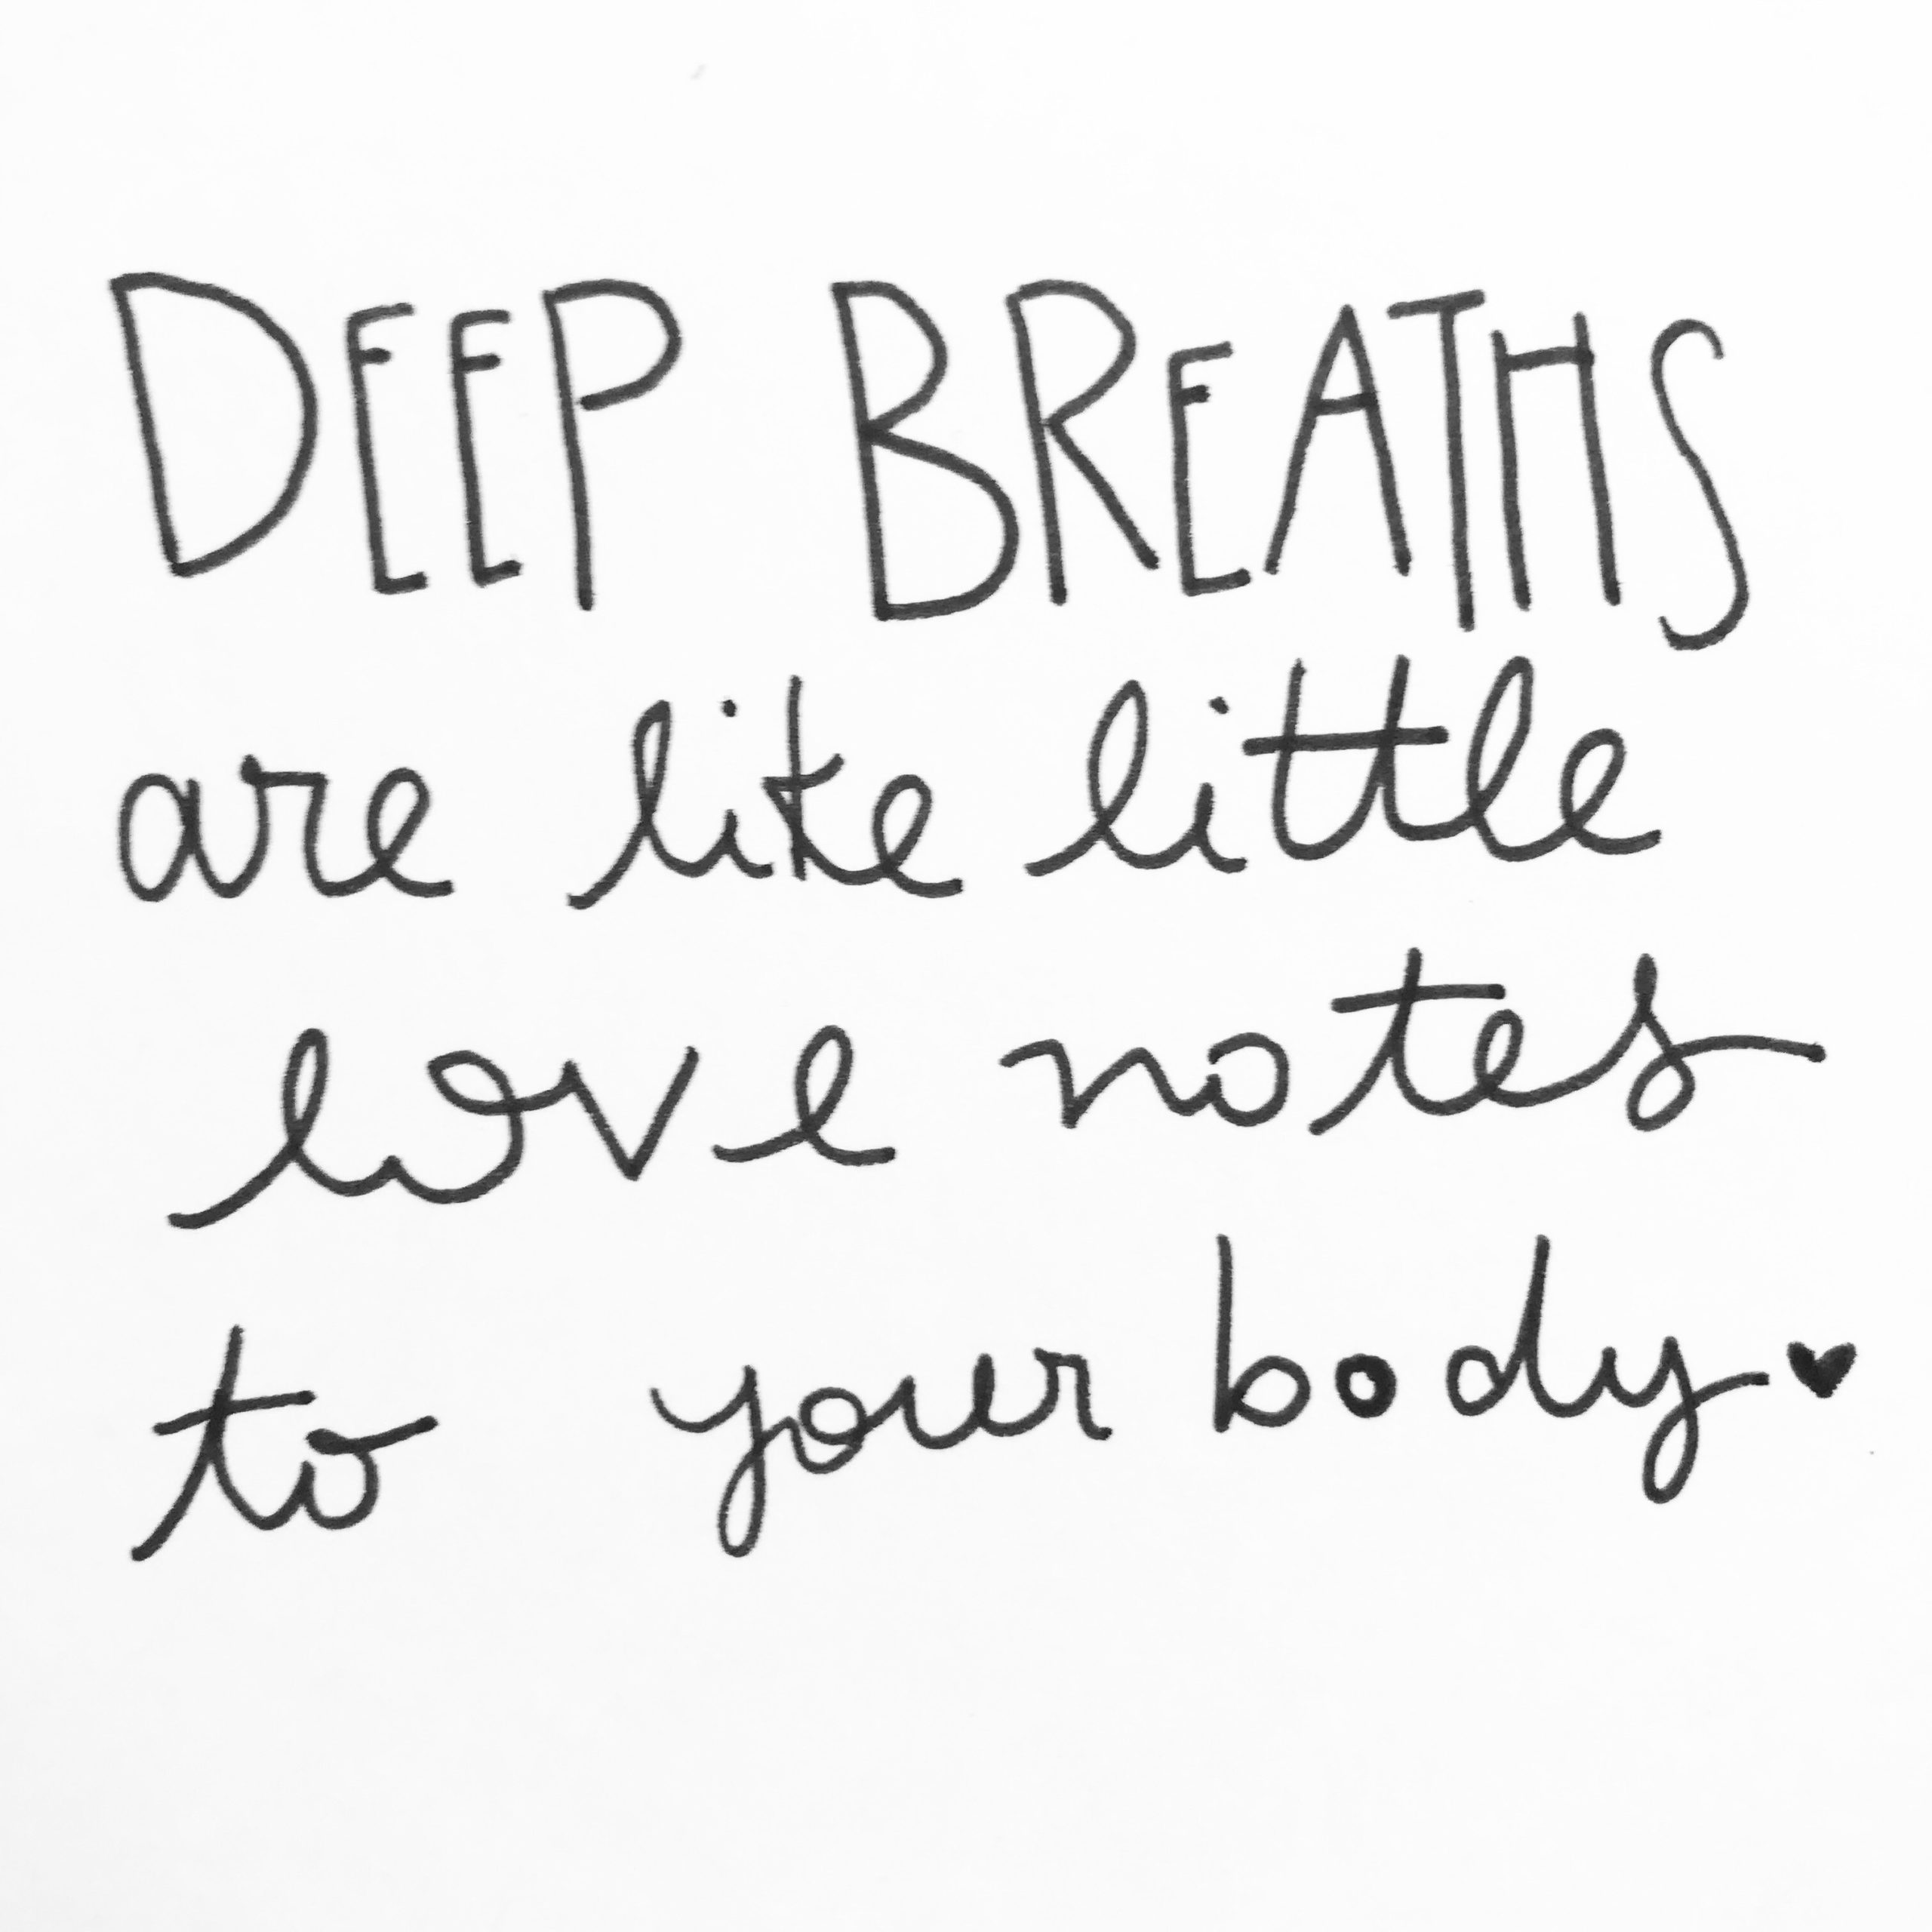 DEEP BREATHS
are like little
love notes
to your body♥